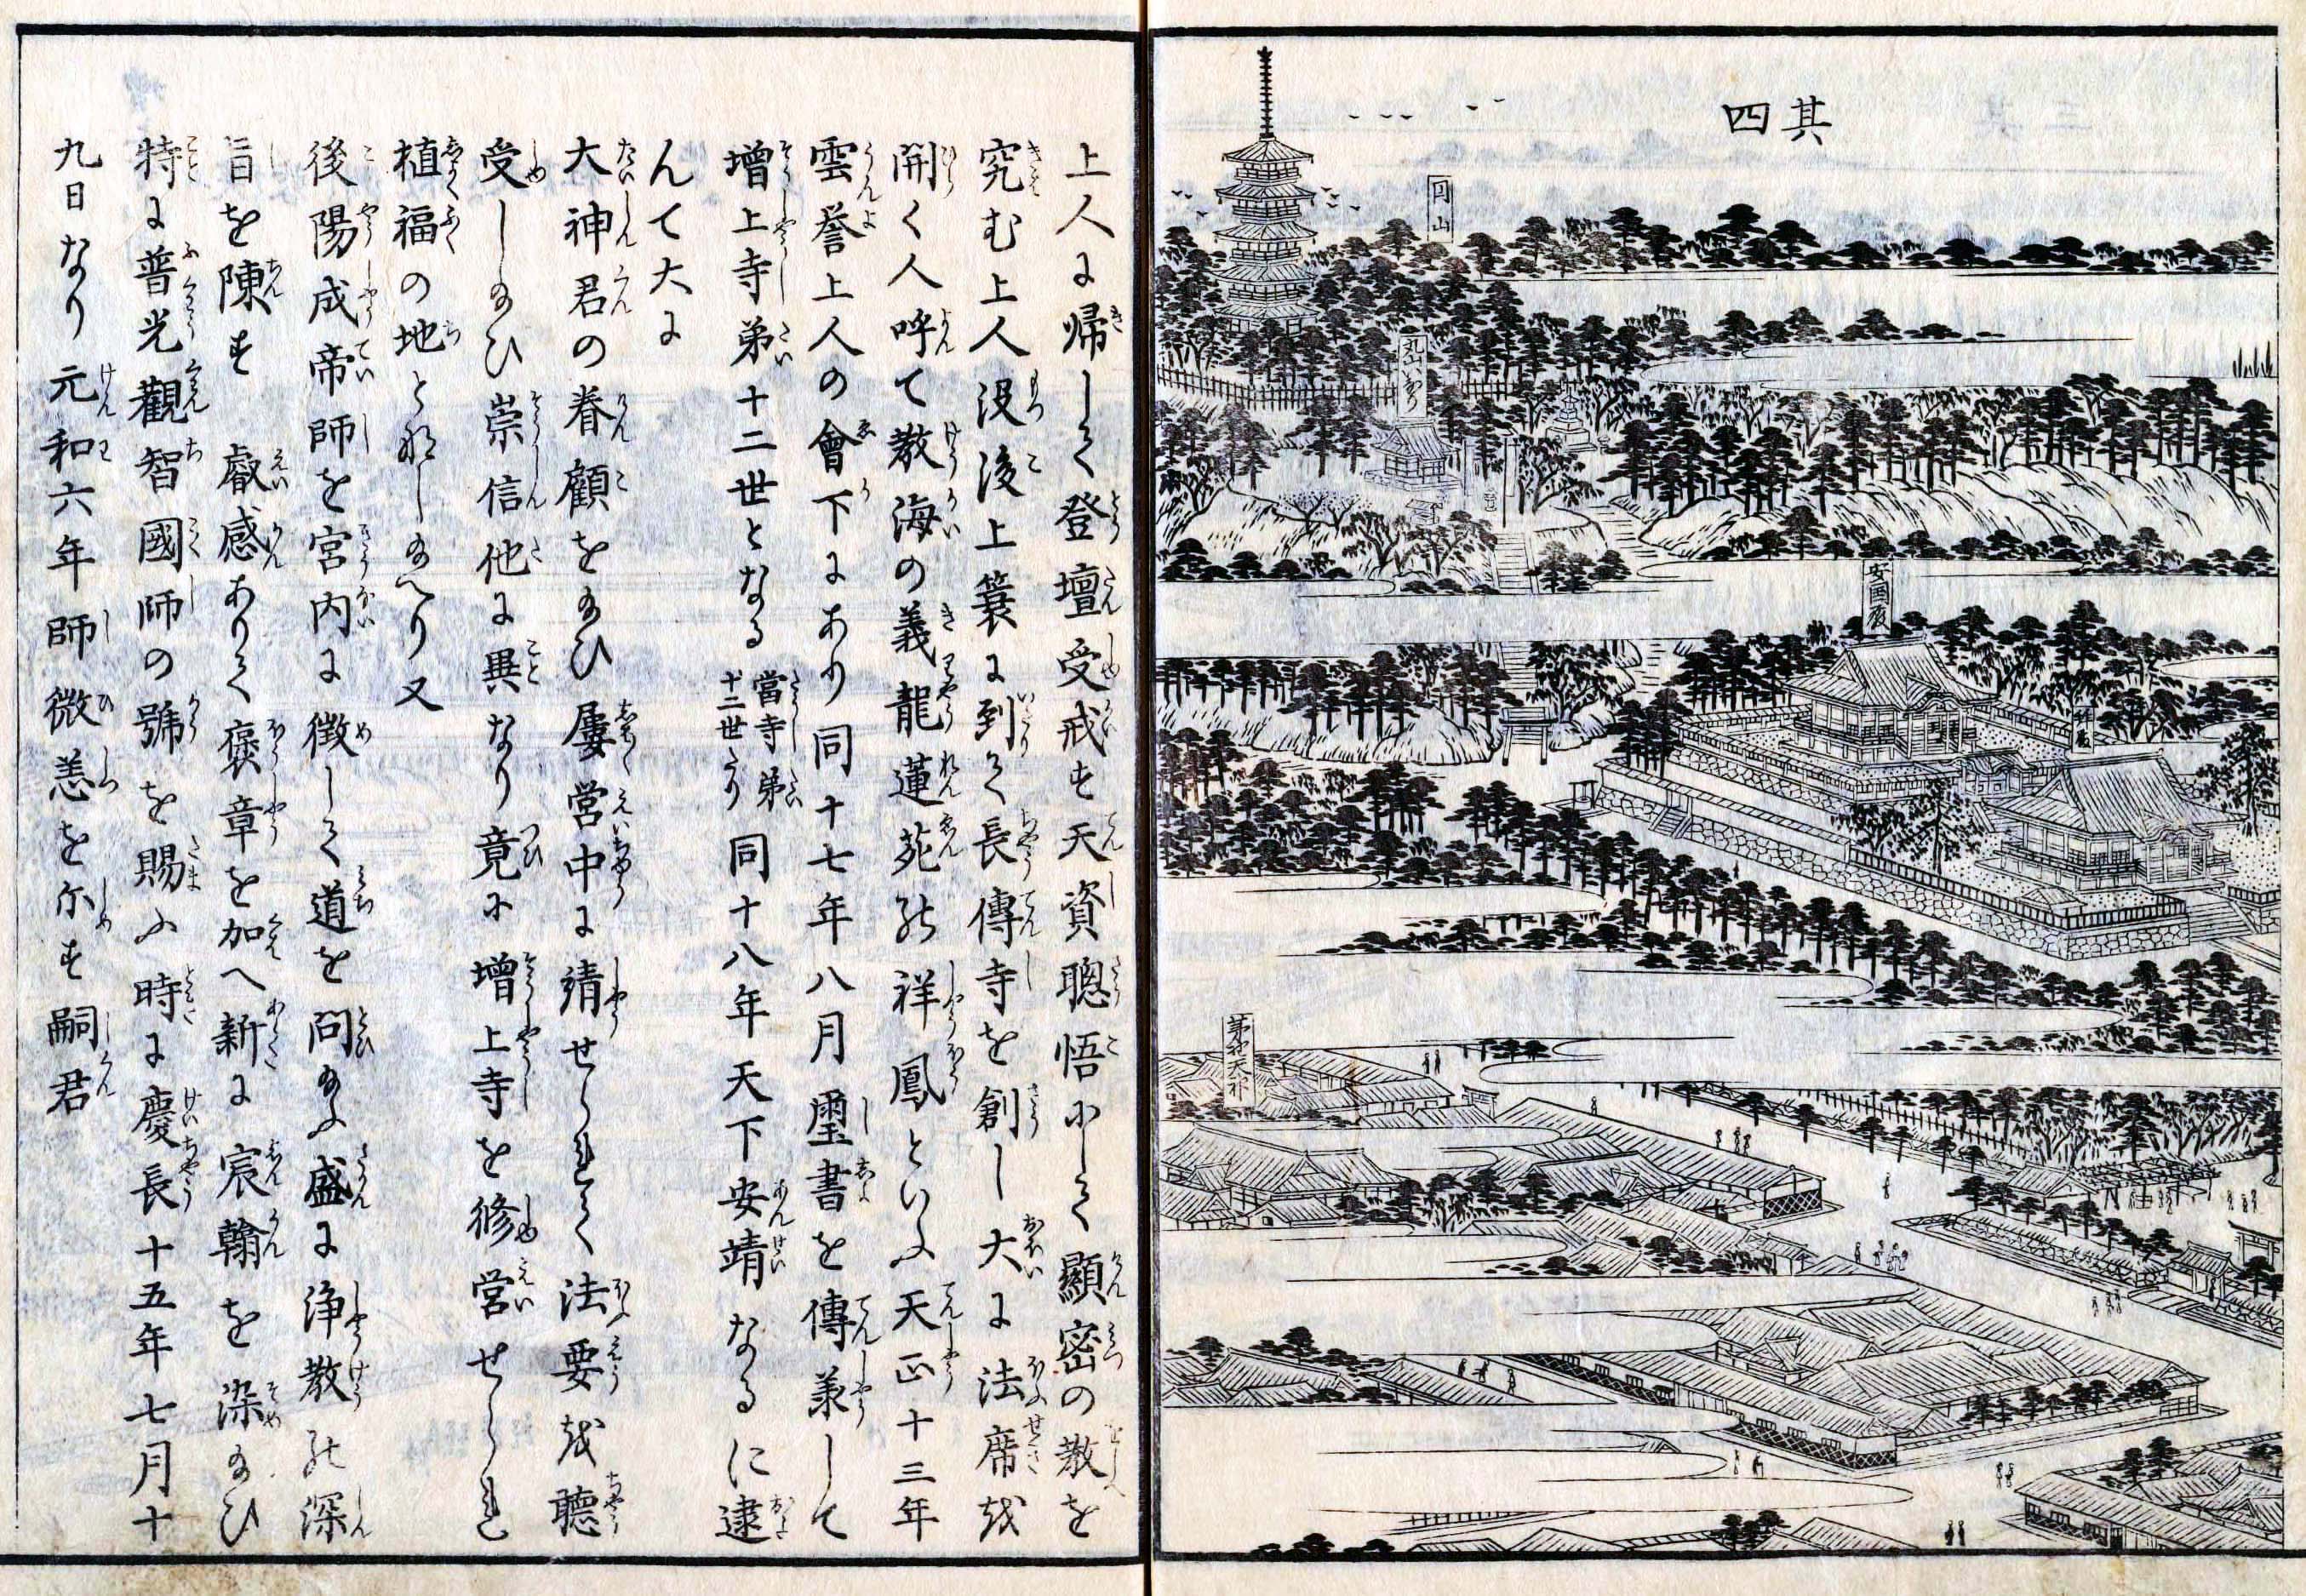 其四
円山
丸山いなり
安国殿
拝殿
茅野天神
上人に帰して登壇受戒す天資聰悟にして顯密の教を
究む上人没後上簑に到て長傳寺を創し大に法席を
開く人呼て教海の義龍蓮苑の祥鳳といふ天正十三年
雲誉上人の會下にあり同十七年八月璽書を傳羕して
増上寺弟十二世となる當寺弟十二世なり同十八年天下安靖なるに逮
んて大に
大神君の眷顧をたまひ屢営中に請せられて法要を聴
受したまひ崇信他に異なり竟に増上寺を修営せられ
植福の地となしたまへり又
後陽成帝師を宮内に徴して道を問たまふ盛に浄教の深
旨を陳す 叡感ありて褒章を加へ新に宸翰を染たまひ
特に普光觀智國師の號を賜ふ時に慶長十五年七月十
九日なり元和六年師微恙を示す嗣君